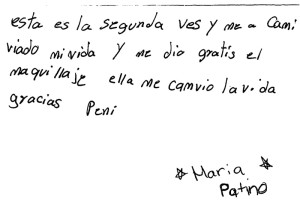 esta es la segunda ves y me a Cami
viado mi vida y me dio gratis el
maquillaje ella me camvio la vida
gracias Peni
Maria
Patino